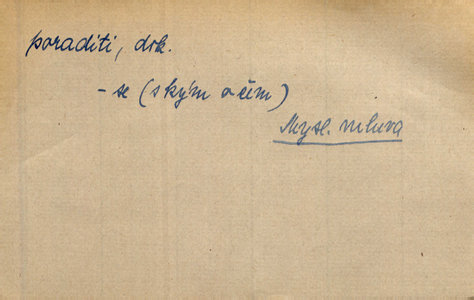 poraditi, dok.
- se (s kým o čem)
Mysl. mluva